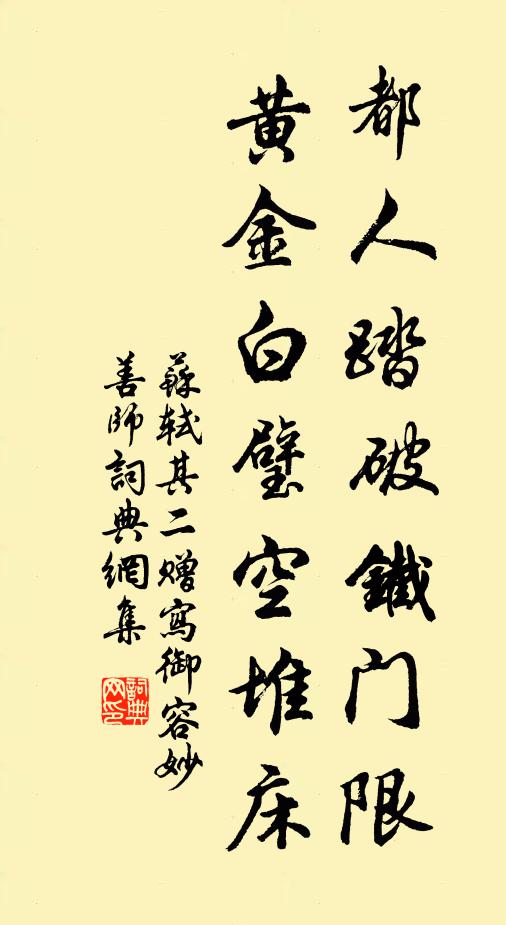 都人踏破鐵門限
黃金白璧空堆床
蘇軾其二贈寫御容妙
善師詞典網集
詞典
网印